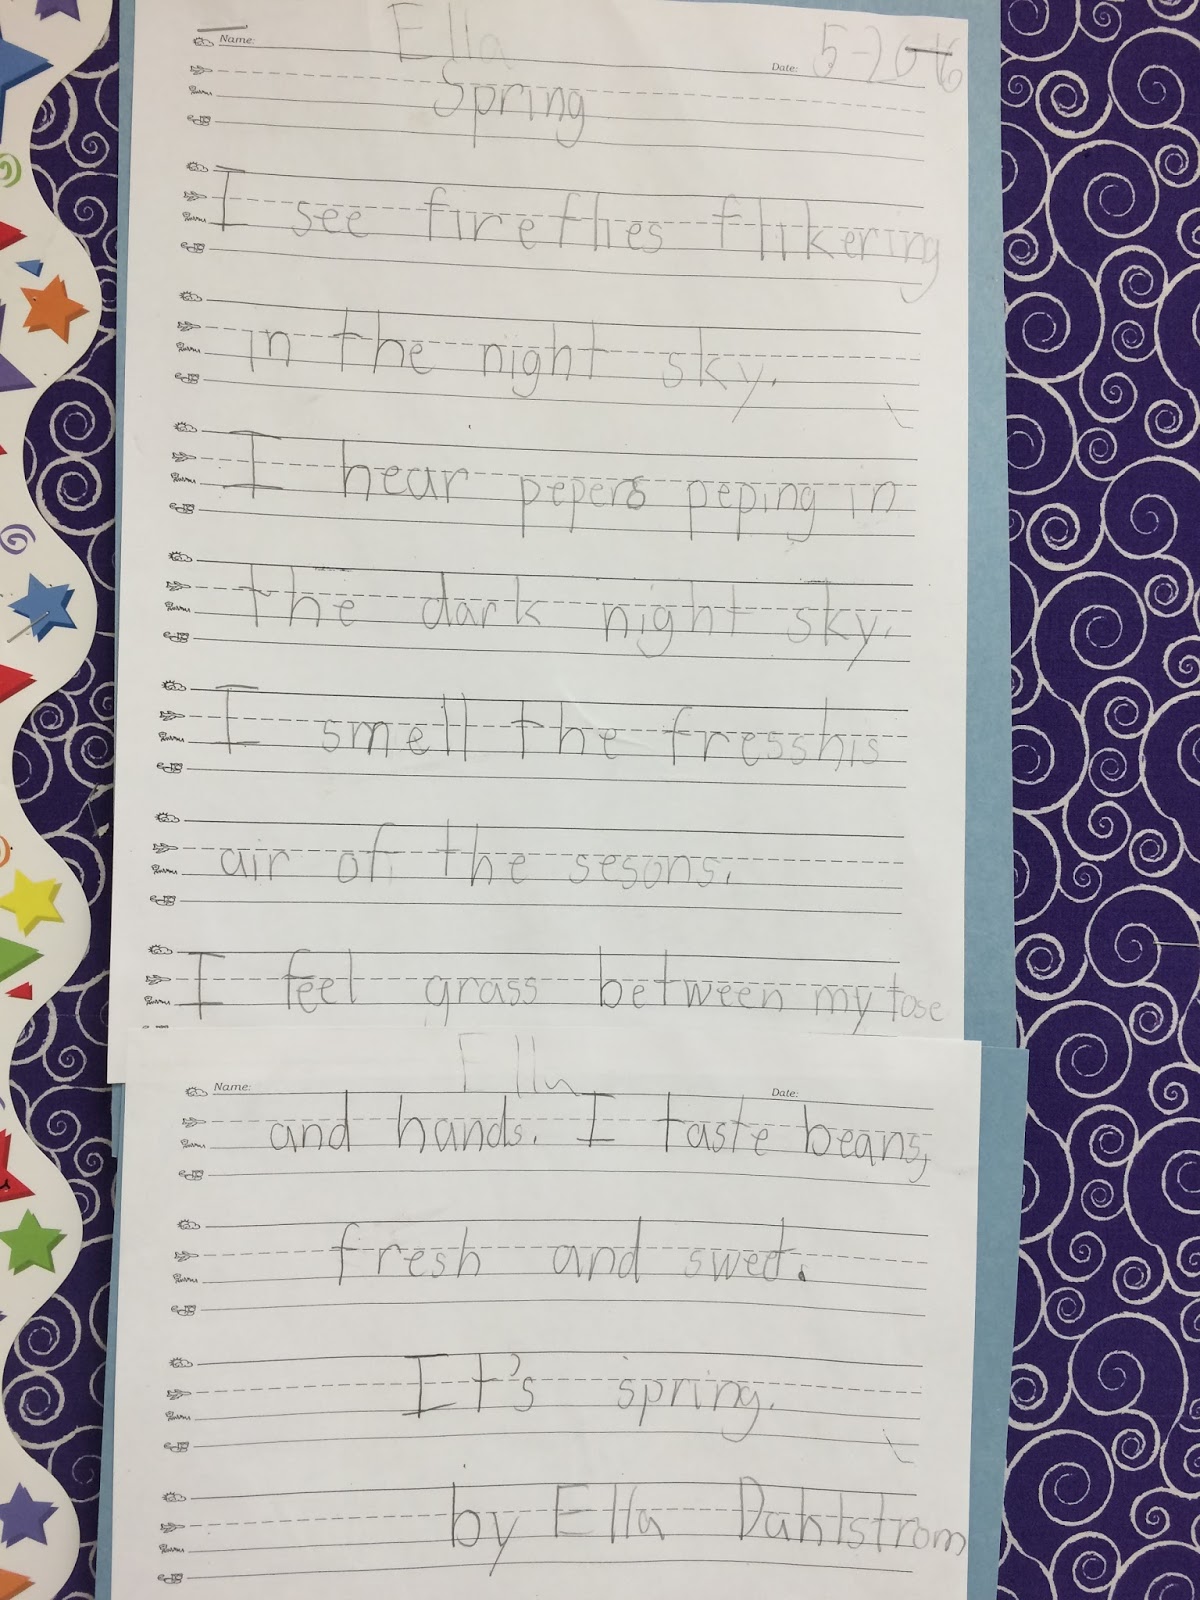 Name: Ella Date: 5-20-16
Spring
I see fireflies flikering
in the night sky.
I hear pepers peping in
the dark night sky.
I smell the fresshis
air of the sesons.
I feel grass between my tose
Name: Ella Date:
and hands. I taste beans,
fresh and sweet.
It's spring.
by Ella Dahlstrom